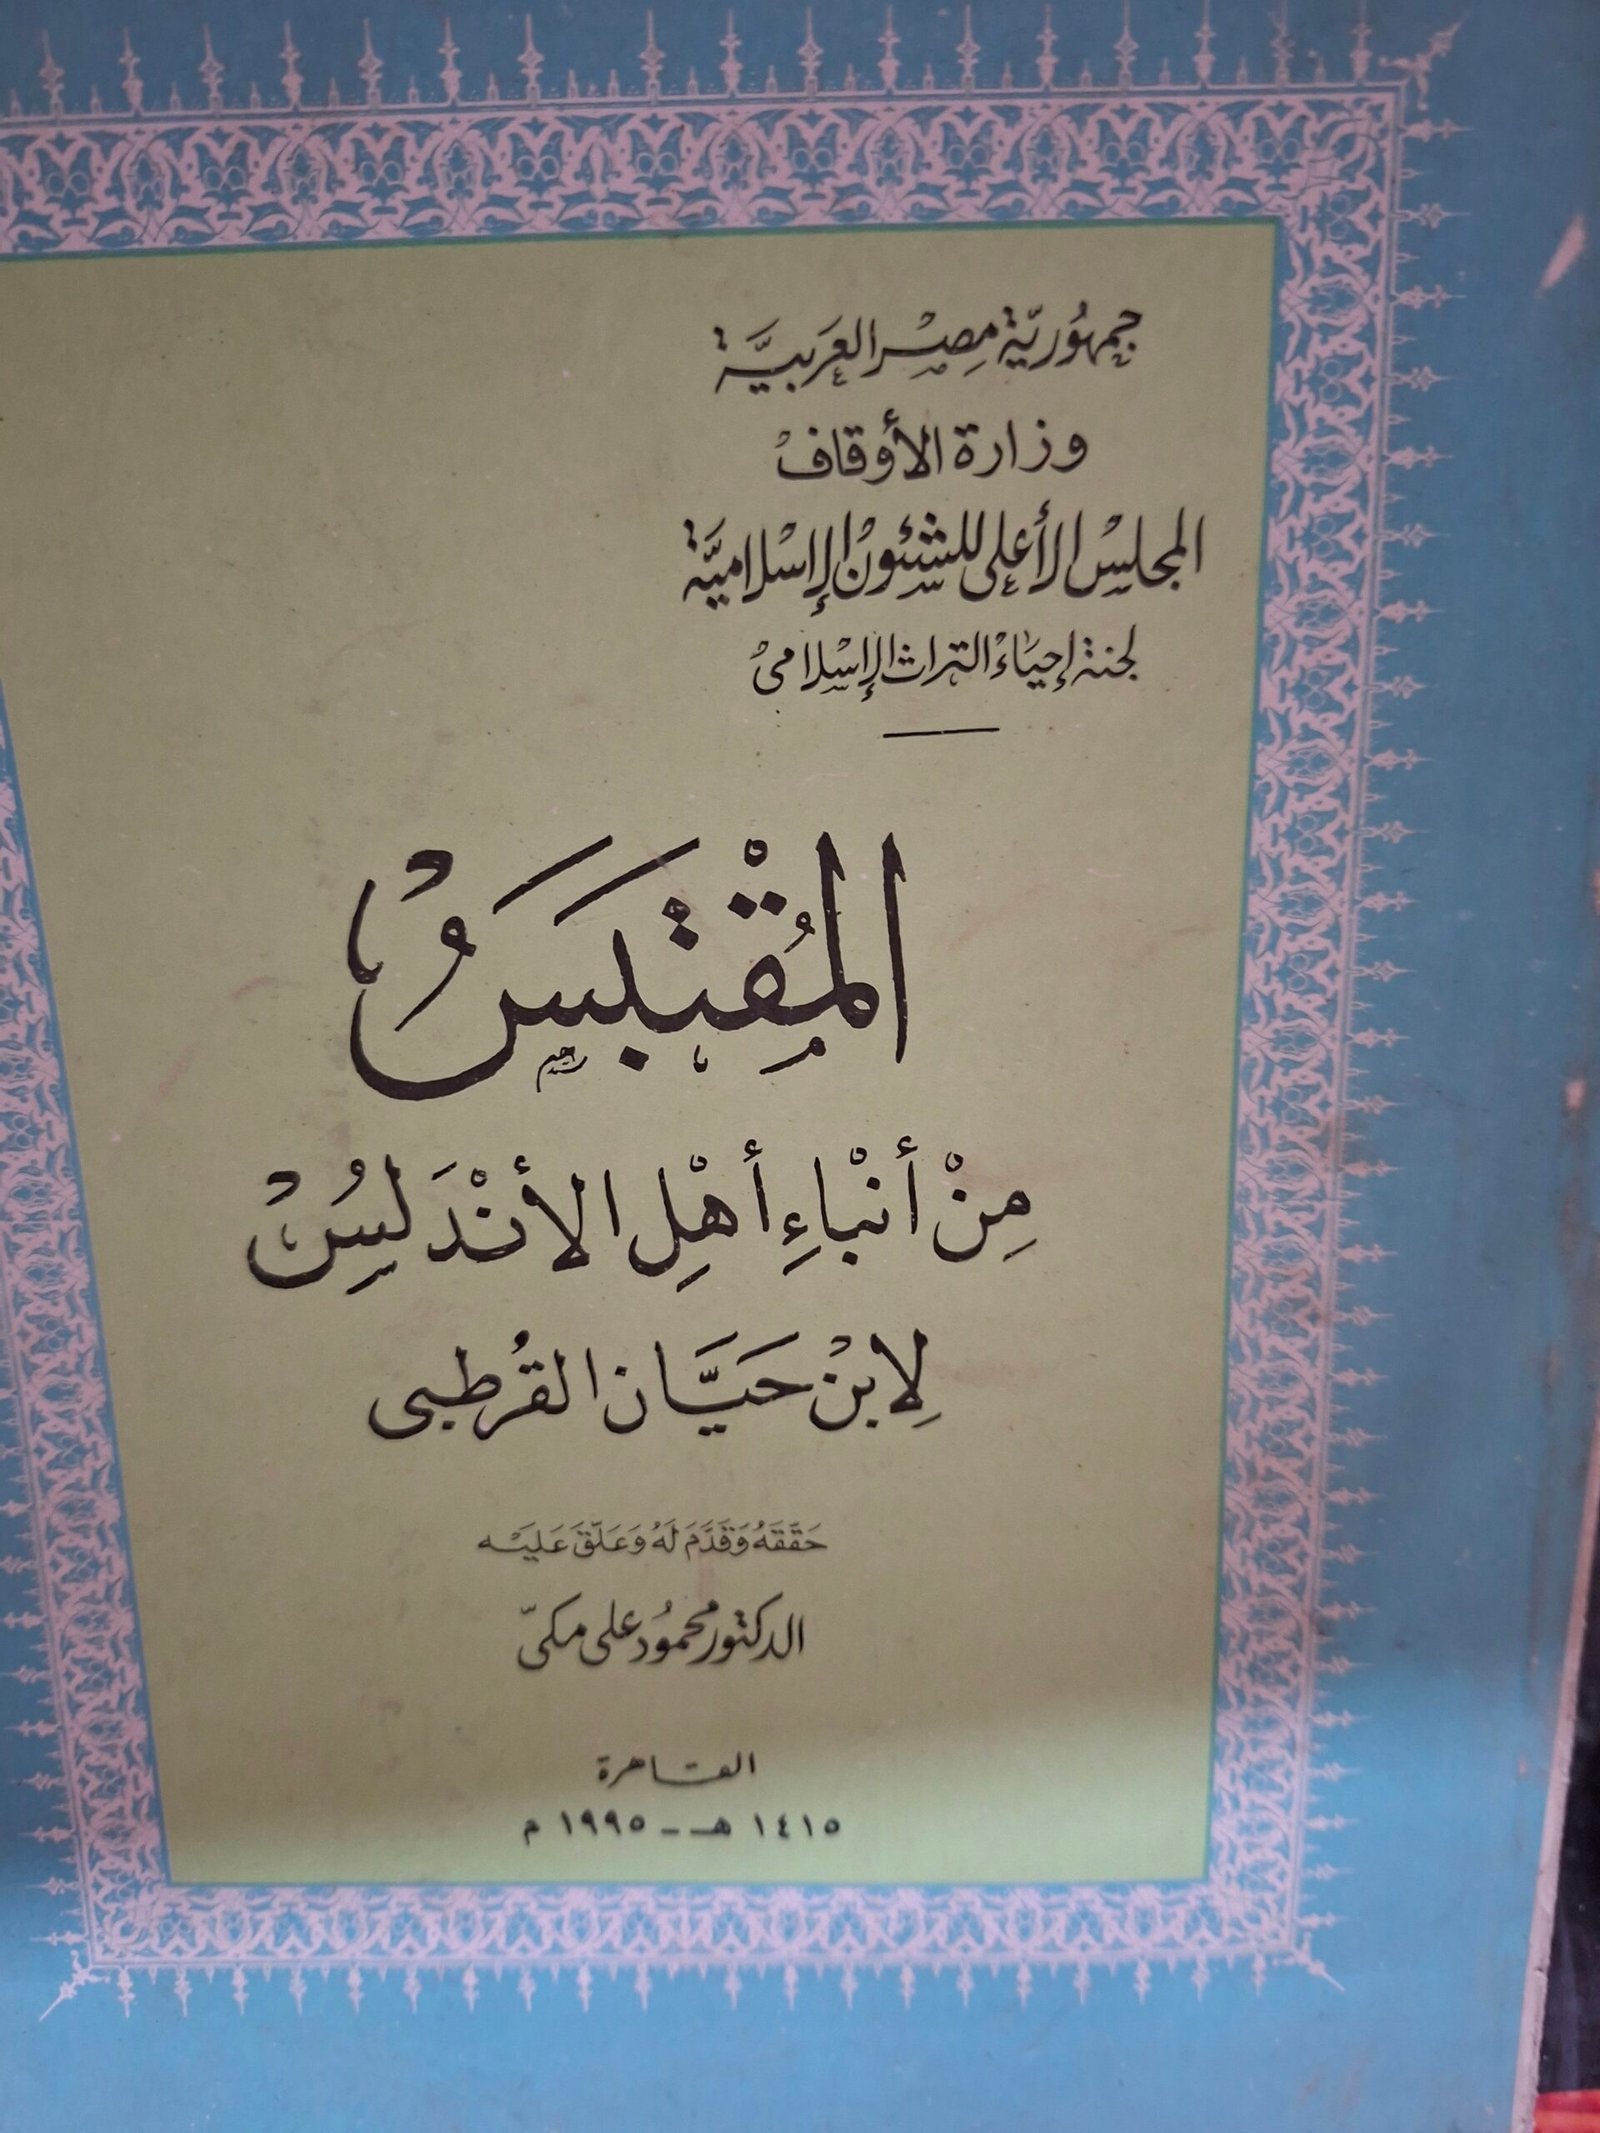 جمهُوريّة مِصْر العَربيَّة
وزارة الأوقافْ
المجلسْ الأعلى للشئونْ الإسْلاميَّة
لجنة إحيَاءْ التراث الإسْلامىْ
المُقْتَبَسْ
مِنْ أنْباءِ أهْلِ الأنْدَلُسِْ
لِابنْ حَيَّان القُرطبى
حَقَّقَهُ وَقَدَّمَ لَهُ وَعَلّقَ عَليَْه
الدكتور محمُود على مكىّ
القاهرة
١٤١٥ هـ - ١٩٩٥ م